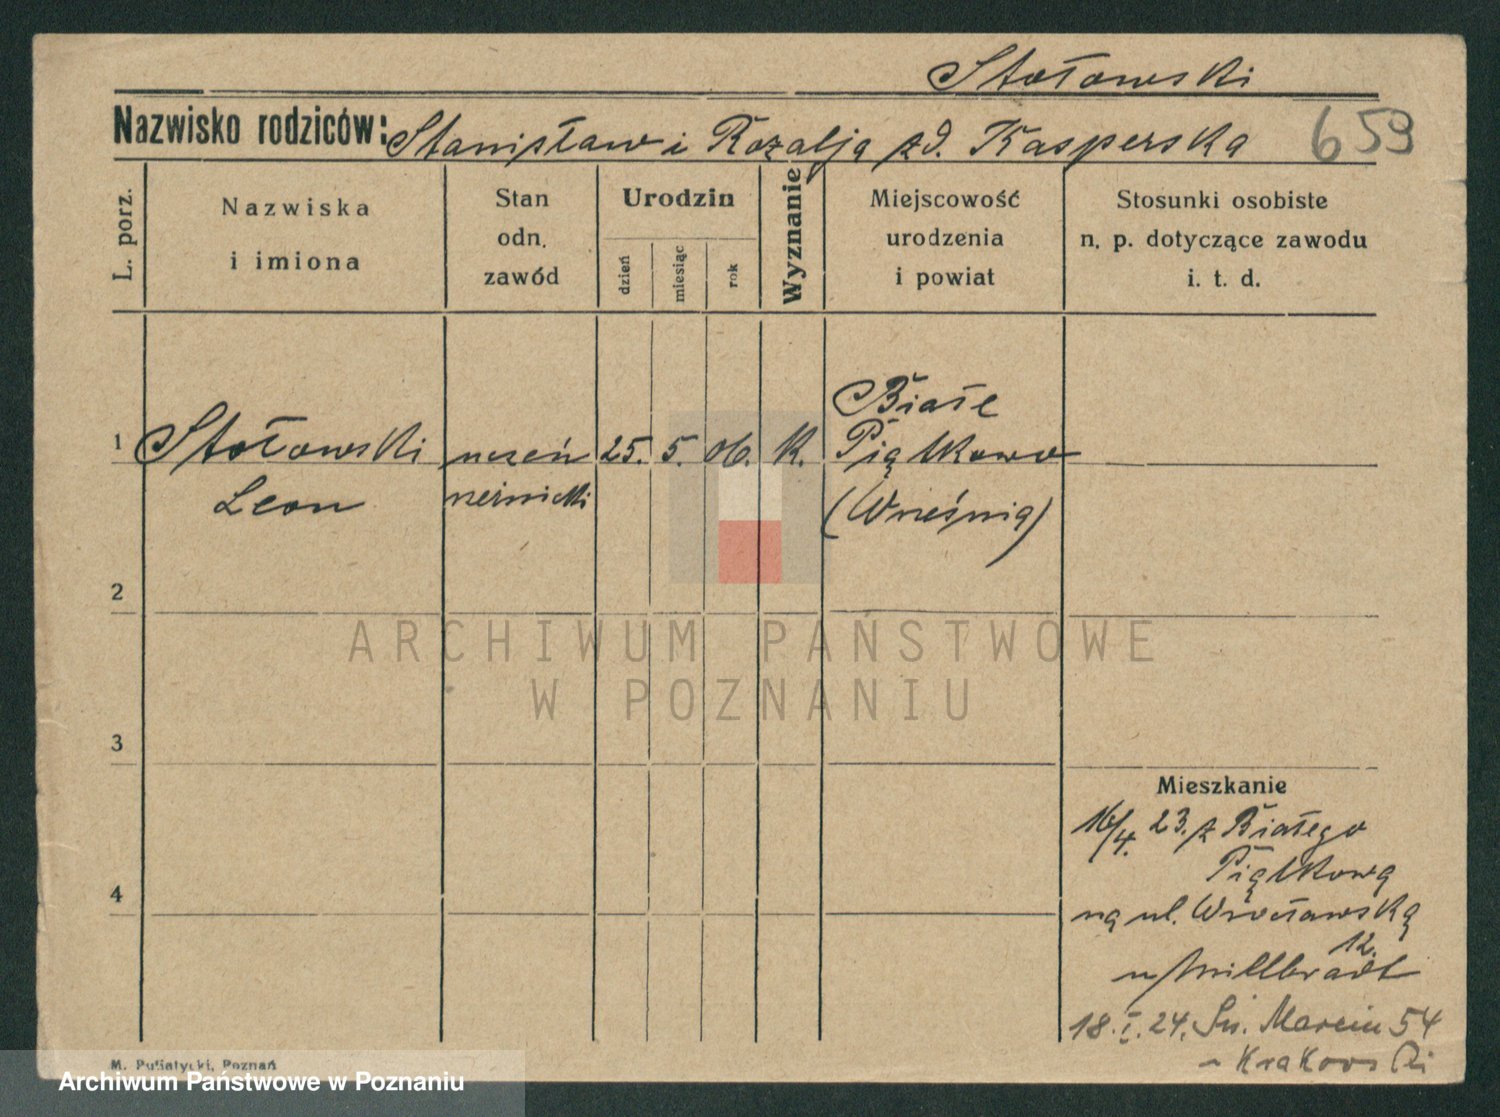 Stołowski
Nazwisko rodziców: Stanisław i Rozalja zd. Kasperska 659
L. porz.
Nazwiska
i imiona
Stan
odn.
zawód
Urodzin
dzień
miesiąc
rok
Wyznanie
Miejscowość
urodzenia
i powiat
Stosunki osobiste
n. p. dotyczące zawodu
i. t. d.
1 Stołowski uczeń 25. 5. 06. K. Białe
Piątkowo
Leon rzeźnicki (Września)
2
3
4
Mieszkanie
16/4. 23. z Białego
Piątkowa
na ul. Wrocławską
12.
u Millbradt
18.I.24. Św. Marcin 54
u Krakowski
M. Pusiatycki, Poznań
ARCHIWUM PAŃSTWOWE
W POZNANIU
Archiwum Państwowe w Poznaniu